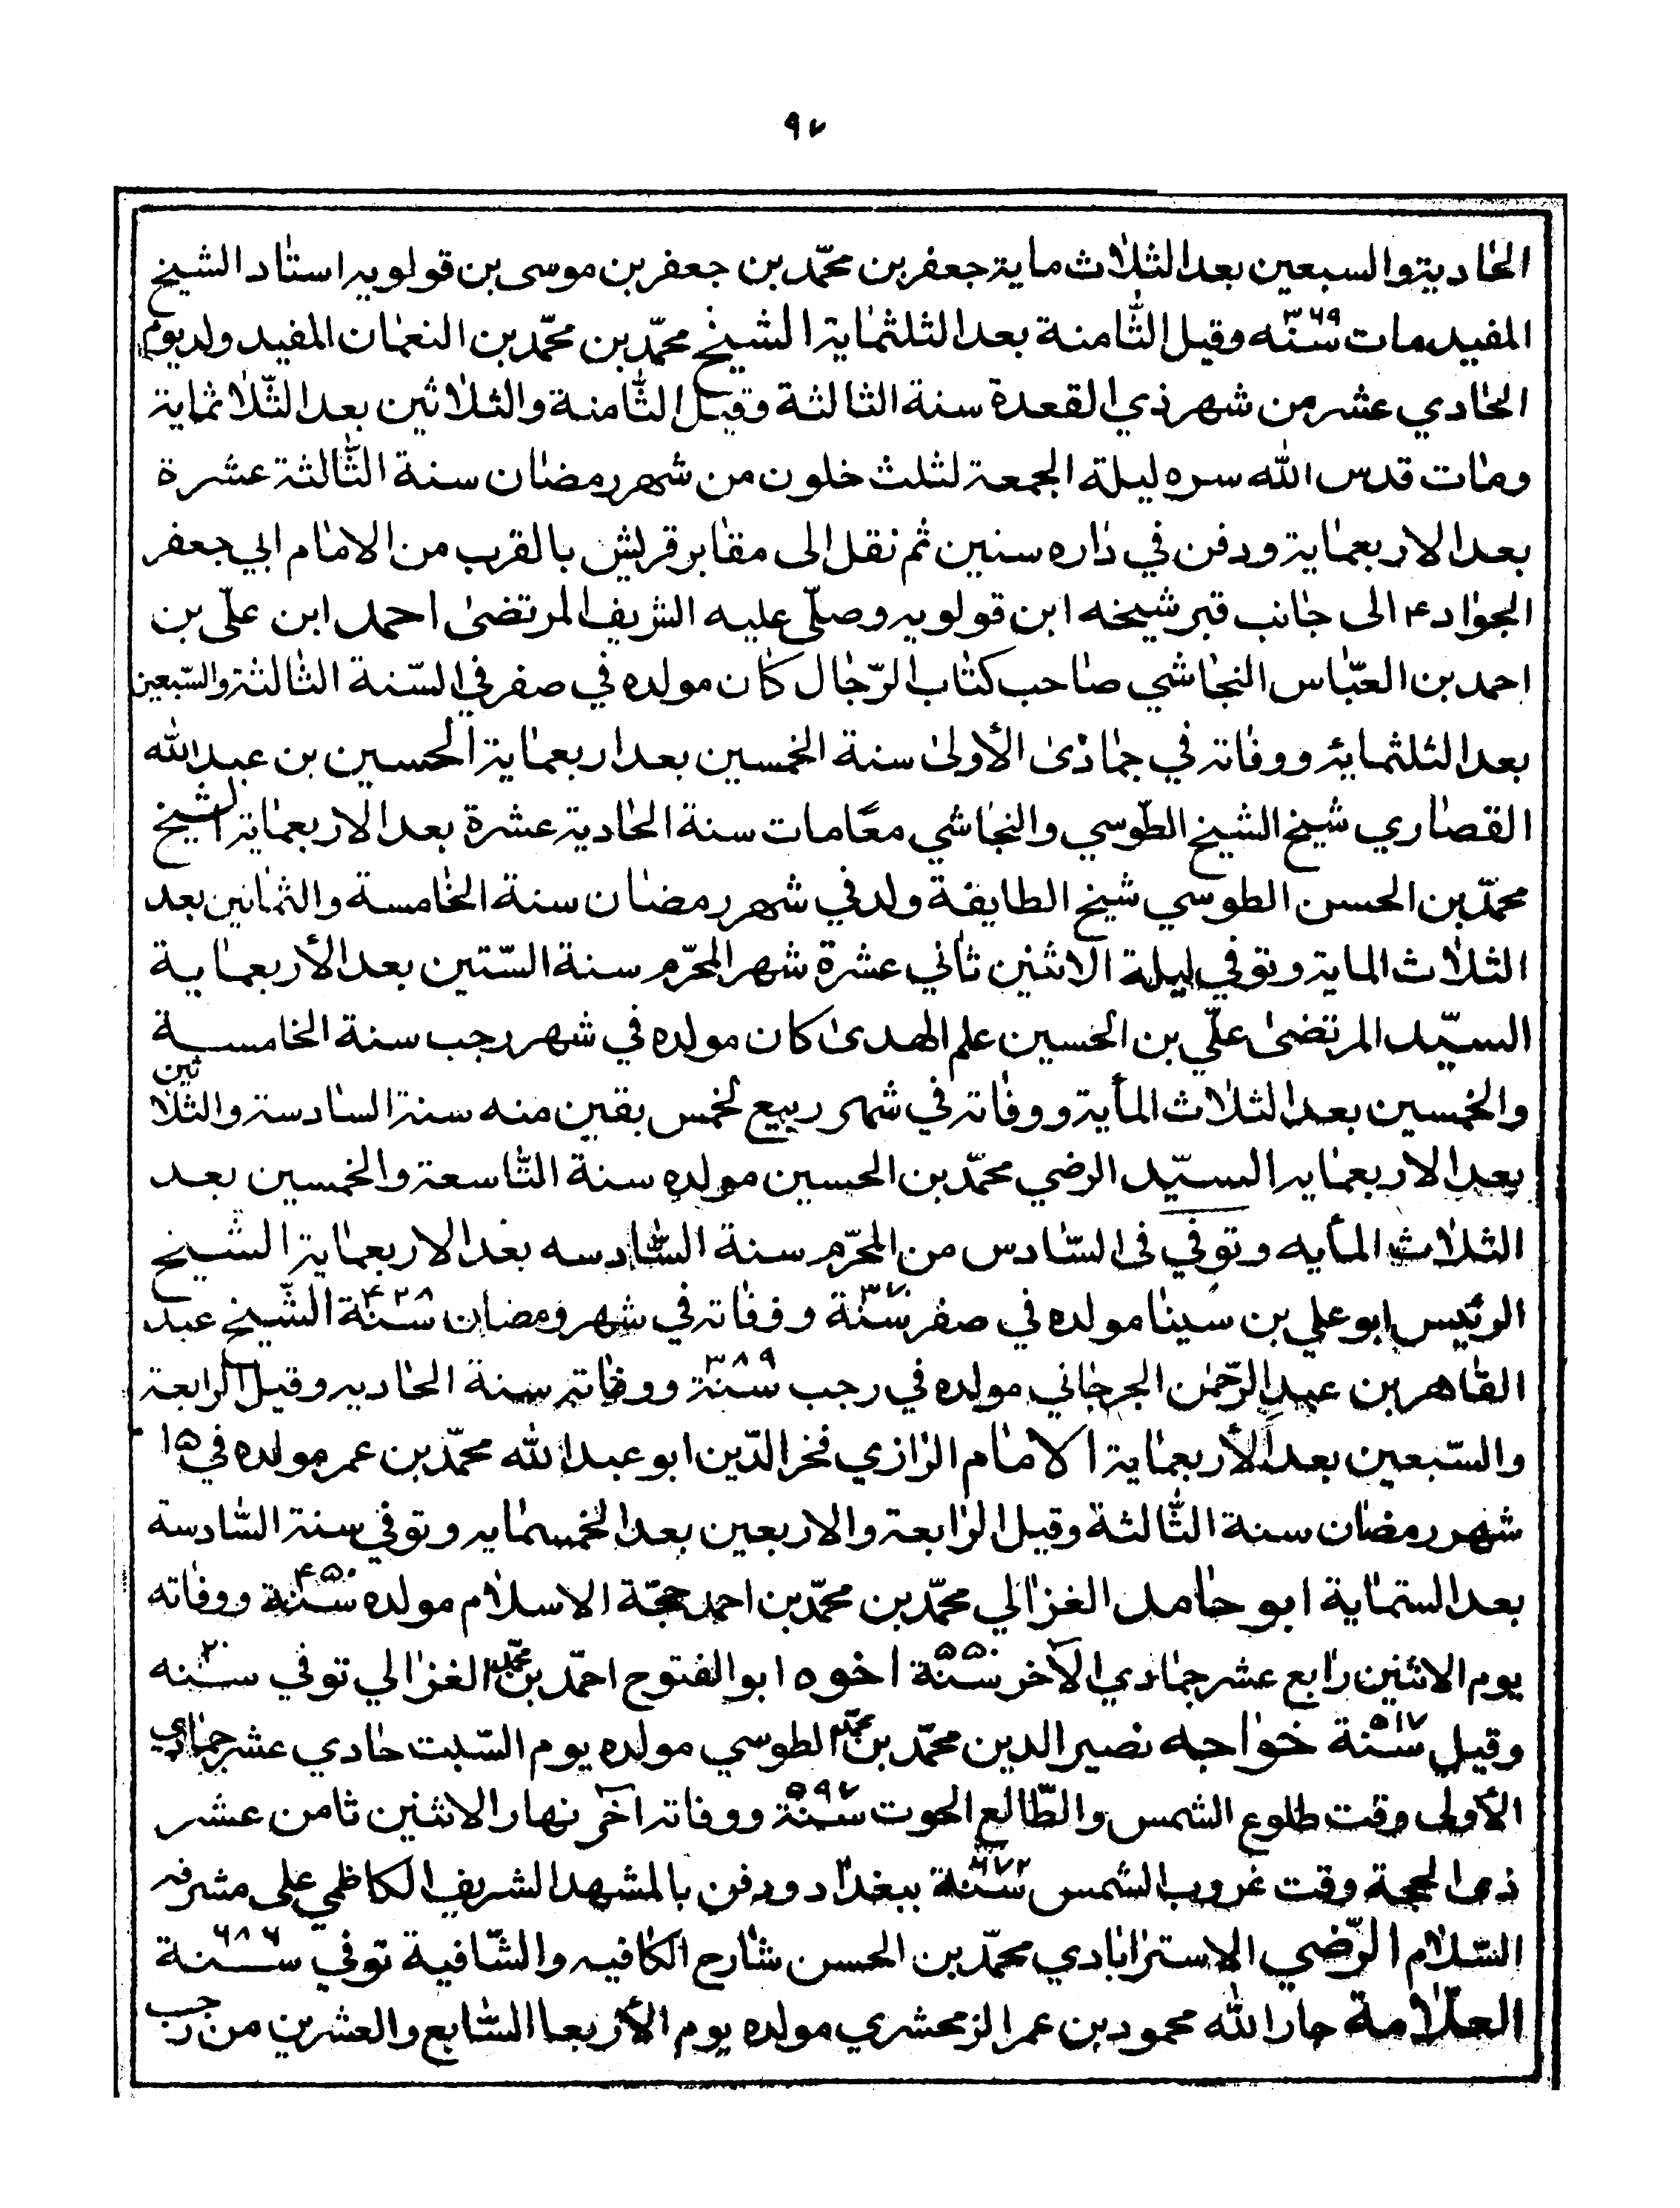 ٩٧
الحادية والسبعين بعد الثلاث ماية جعفر بن محمّد بن جعفر بن موسى بن قولويه استاد الشيخ
المفيد مات سنه ٣٦٩ وقيل الثّامنة بعد الثلثماية الشيخ محمّد بن محمّد بن النعمان المفيد ولد يوم
الحادي عشر من شهر ذي القعدة سنة الثالثة وقيل الثّامنة والثلاثين بعد الثّلاثماية
ومات قدس الله سره ليلة الجمعة لثلث خلون من شهر رمضان سنة الثّالثة عشرة
بعد الاربعماية ودفن في داره سنين ثم نقل الى مقابر قريش بالقرب من الامام ابي جعفر
الجواد ع الى جانب قبر شيخه ابن قولويه وصلّى عليه الشريف المرتضى احمد ابن علّي بن
احمد بن العبّاس النجاشي صاحب كتاب الرّجال كان مولده في صفر في السّنة الثالثة والسّبعين
بعد الثلثمائة ووفاته في جمادى الأولى سنة الخمسين بعد اربعماية الحسين بن عبد الله
القصاري شيخ الشيخ الطّوسي والنجاشي معًا مات سنة الحادية عشرة بعد الاربعماية الشيخ
محمّد بن الحسن الطوسي شيخ الطايفة ولد في شهر رمضان سنة الخامسة والثمانين بعد
الثلاث الماية وتوفي ليلة الاثنين ثاني عشرة شهر المحرّم سنة السّتين بعد الأربعماية
السيّد المرتضى علّي بن الحسين علم الهدى كان مولده في شهر رجب سنة الخامسة
والخمسين بعد الثلاث المأية ووفاته في شهر ربيع لخمس بقين منه سنة السادسة والثلاثين
بعد الاربعمايه السيّد الرضي محمّد بن الحسين مولده سنة التّاسعة والخمسين بعد
الثلاث المأيه وتوفي فى السّادس من المحرّم سنة السّادسه بعد الاربعماية الشيخ
الرئيس ابو علي بن سينا مولده في صفر سنة ٣٧٠ ووفاته في شهر رمضان سنة ٤٢٨ الشّيخ عبد
القاهر بن عبد الرّحمن الجرجاني مولده في رجب سنة ٣٨٩ ووفاته سنة الحاديه وقيل الرابعة
والسّبعين بعد الأربعماية الامام الرازي فخر الدّين ابو عبد الله محمّد بن عمر مولده في ١٥
شهر رمضان سنة الثّالثة وقيل الرابعة والاربعين بعد الخمسمايه وتوفي سنة السّادسة
بعد الستماية ابو حامد الغزالي محمّد بن محمّد بن احمد حجّة الاسلام مولده سنة ٤٥٠ ووفاته
يوم الاثنين رابع عشر جمادي الآخر سنة ٥٥٠ اخوه ابو الفتوح احمّد بن محمّد الغزالي توفي سنه ٢٠
وقيل سنة ٥١٧ خواجه نصير الدين محمّد بن محمّد الطوسي مولده يوم السّبت حادي عشر جمادي
الأولى وقت طلوع الشمس والطّالع الحوت سنة ٥٩٧ ووفاته آخر نهار الاثنين ثامن عشر
ذى الحجة وقت غروب الشمس سنة ٦٧٢ ببغداد ودفن بالمشهد الشريف الكاظمي على مشرفه
السّلام الرّضي الاسترابادي محمّد بن الحسن شارح الكافيه والشّافية توفي سنة ٦٨٦
العلّامة جار الله محمود بن عمر الزمخشري مولده يوم الأربعا السّابع والعشرين من رجب